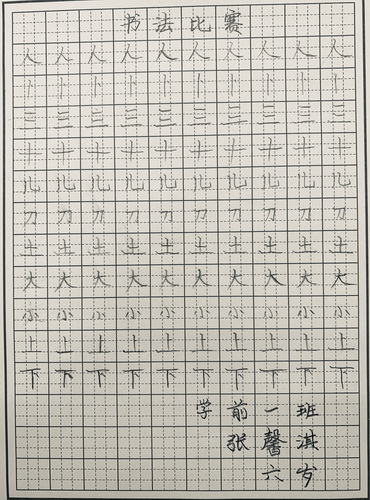 书法比赛
人人人人人人人人人人
卜卜卜卜卜卜卜卜卜卜
三三三三三三三三三三
儿儿儿儿儿儿儿儿儿儿
刀刀刀刀刀刀刀刀刀刀
土土土土土土土土土土
大大大大大大大大大大
小小小小小小小小小小
上上上上上上上上上上
下下下下下下下下下下
学前一班
张馨淇
六岁